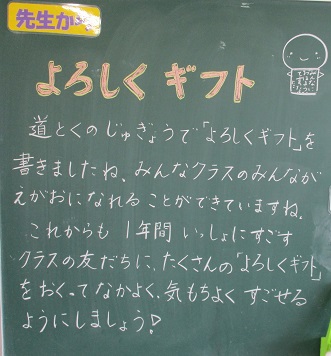 先生から
よろしく ギフト
道とくのじゅぎょうで「よろしくギフト」を
書きましたね、みんなクラスのみんなが
えがおになれることができていますね。
これからも 1年間 いっしょにすごす
クラスの友だちに、たくさんの「よろしくギフト」
をおくってなかよく、気もちよく すごせる
ようにしましょう!